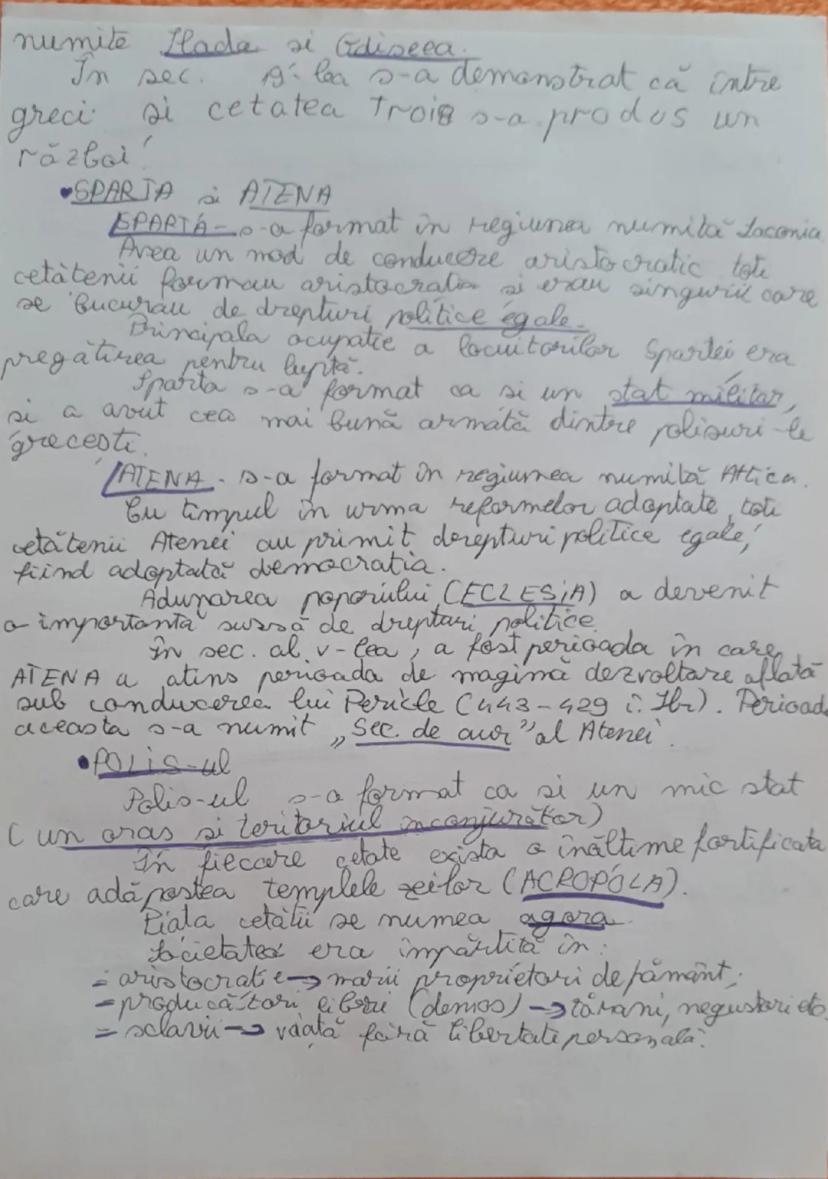 numite Iliada si Odiseea.
În sec. 19-lea s-a demonstrat că între
greci si cetatea Troia s-a produs un
război!
•SPARTA si ATENA
SPARTA - s-a format în regiunea numită Laconia
Avea un mod de conducere aristocratic toti
cetătenii formau aristocratia si erau singurii care
se bucurau de drepturi politice egale.
Principala ocupatie a locuitorilor Spartei era
pregătirea pentru luptă.
Sparta s-a format ca si un stat militar,
si a avut cea mai bună armată dintre polisuri-le
grecesti.
ATENA - s-a format în regiunea numită Attica.
Cu timpul în urma reformelor adoptate, toti
cetătenii Atenei au primit derepturi politice egale,
fiind adoptată democratia.
Adunarea poporului (ECLESIA) a devenit
o importantă sursă de dreptari politice.
în sec. al V-lea, a fost perioada în care
ATENA a atins perioada de magimă dezvoltare aflată
sub conducerea lui Pericle (443-429 î. Hr). Perioad
aceasta s-a numit „Sec. de aur” al Atenei.
•POLIS-ul
Polis-ul s-a format ca si un mic stat
(un oras si teritoriul inconjurător)
În fiecare cetate exista o înăltime fortificata
care adăpostea templele zeilor (ACROPOLA).
Piata cetătii se numea agora.
Societatea era împărtită în:
= aristocratie → marii proprietari de pământ;
= producători liberi (demos) → tărani, negustori etc.
= sclavii → viată fără libertate personală.